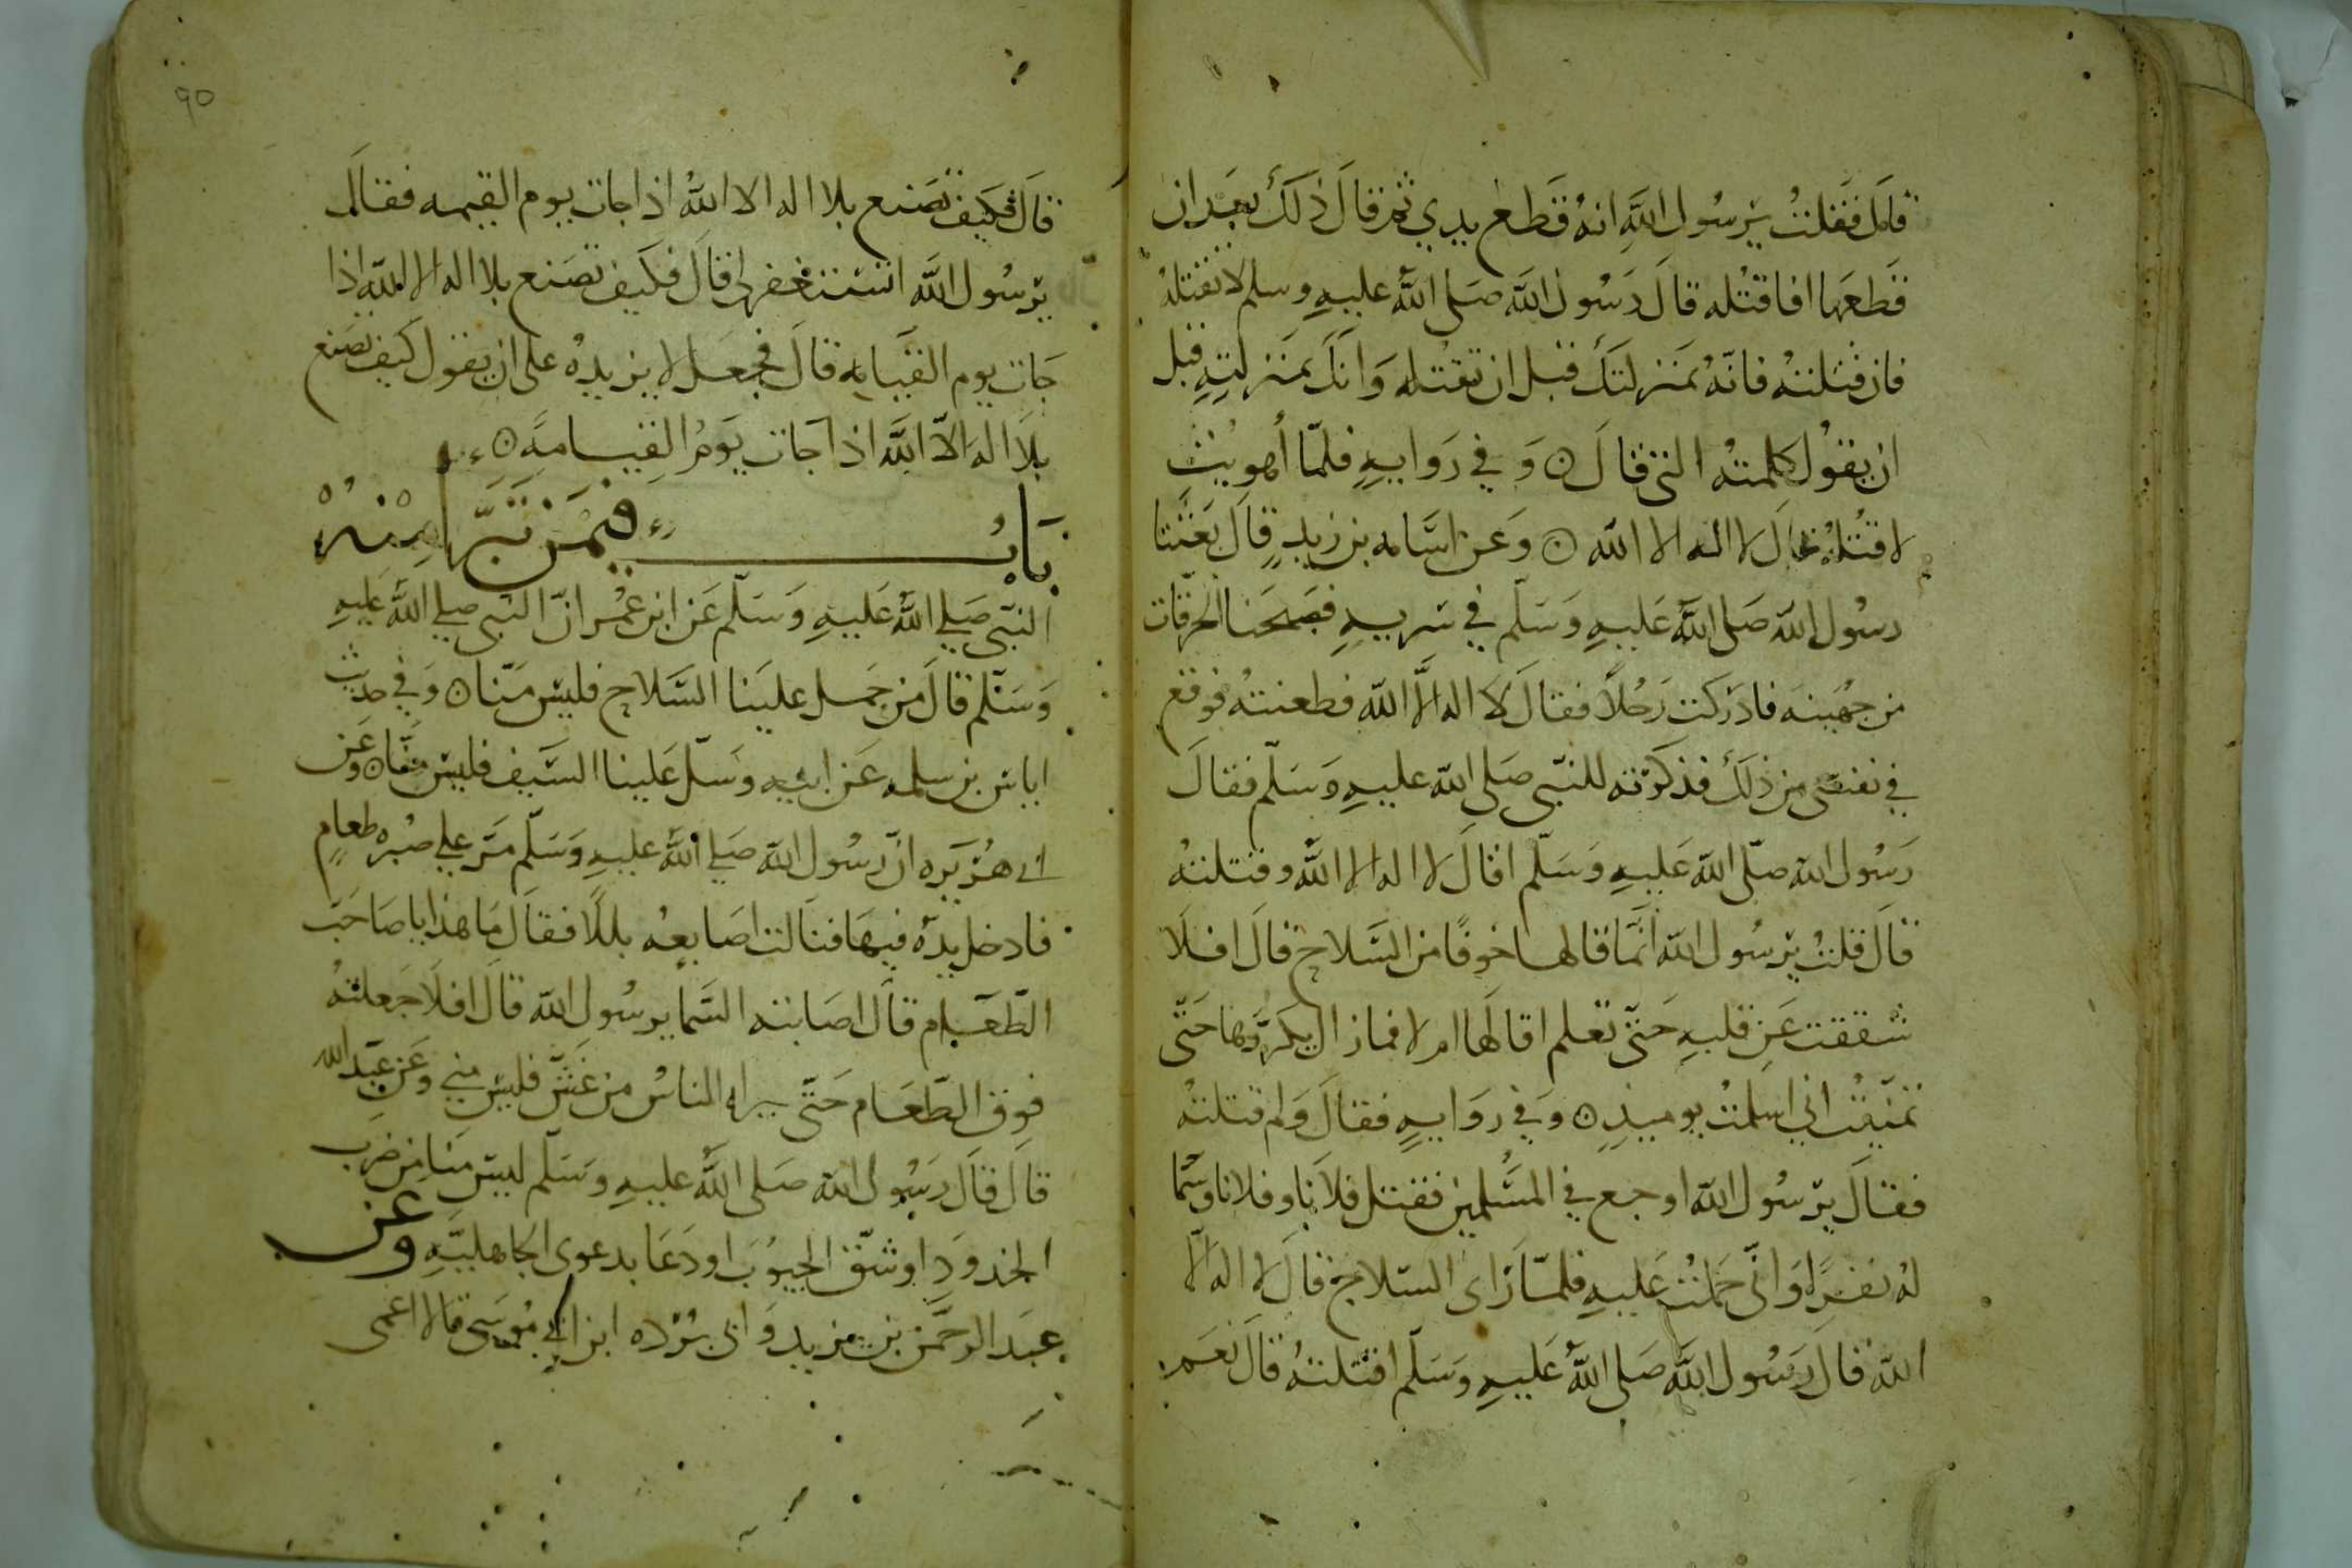 قال فقلت يرسول الله انه قطع يدي ثم قال ذلك بعد ان
قطعها افاقتله قال رسول الله صلى الله عليه وسلم لا تقتله
فان قتلته فانه بمنزلتك قبل ان تقتله وانك بمنزلته قبل
ان يقول كلمته التى قال ۞ وفي روايه فلما أهويت
لاقتله قال لا اله الا الله ۞ وعن اسامه بن زيد قال بعثنا
رسول الله صلى الله عليه وسلم في سريه فصبحنا الحرقات
من جهينه فادركت رجلا فقال لا اله الا الله فطعنته فوقع
في نفسى من ذلك فذكرته للنبى صلى الله عليه وسلم فقال
رسول الله صلى الله عليه وسلم اقال لا اله الا الله وقتلته
قال قلت يرسول الله انما قالها خوفا من السلاح قال افلا
شققت عن قلبه حتى تعلم اقالها ام لا فمازال يكررها حتى
تمنيت اني اسلمت يوميذ ۞ وفي روايه فقال ولم قتلته
فقال يرسول الله اوجع في المسلمين فقتل فلانا وفلانا وسما
له نفرا وانى حملت عليه فلما راى السلاح قال لا اله الا
الله قال رسول الله صلى الله عليه وسلم اقتلته قال نعم
٩٥
قال فكيف تصنع بلا اله الا الله اذا جات يوم القيمه فقال
يرسول الله استغفر لى قال فكيف تصنع بلا اله الا الله اذا
جات يوم القيامه قال فجعل لا يزيده على ان يقول كيف تصنع
بلا اله الا الله اذا جات يوم القيامة ۞
باب فيمن تبرا منه
النبى صلي الله عليه وسلم عن ابن عمر ان النبى صلي الله عليه
وسلم قال من حمل علينا السلاح فليس منا ۞ وفي حديث
اياس بن سلمه عن ابيه وسل علينا السيف فليس منا ۞ وعن
ابي هريره ان رسول الله صلي الله عليه وسلم مر علي صبره طعام
فادخل يده فيها فنالت اصابعه بللا فقال ما هذا يا صاحب
الطعام قال اصابته السما يرسول الله قال افلا جعلته
فوق الطعام حتى يراه الناس من غش فليس مني وعن عبد الله
قال قال رسول الله صلى الله عليه وسلم ليس منا من ضرب
الخدود او شق الجيوب او دعا بدعوى الجاهلية وعن
عبد الرحمن بن يزيد وابى برده ابن ابي موسى قالا اغمى